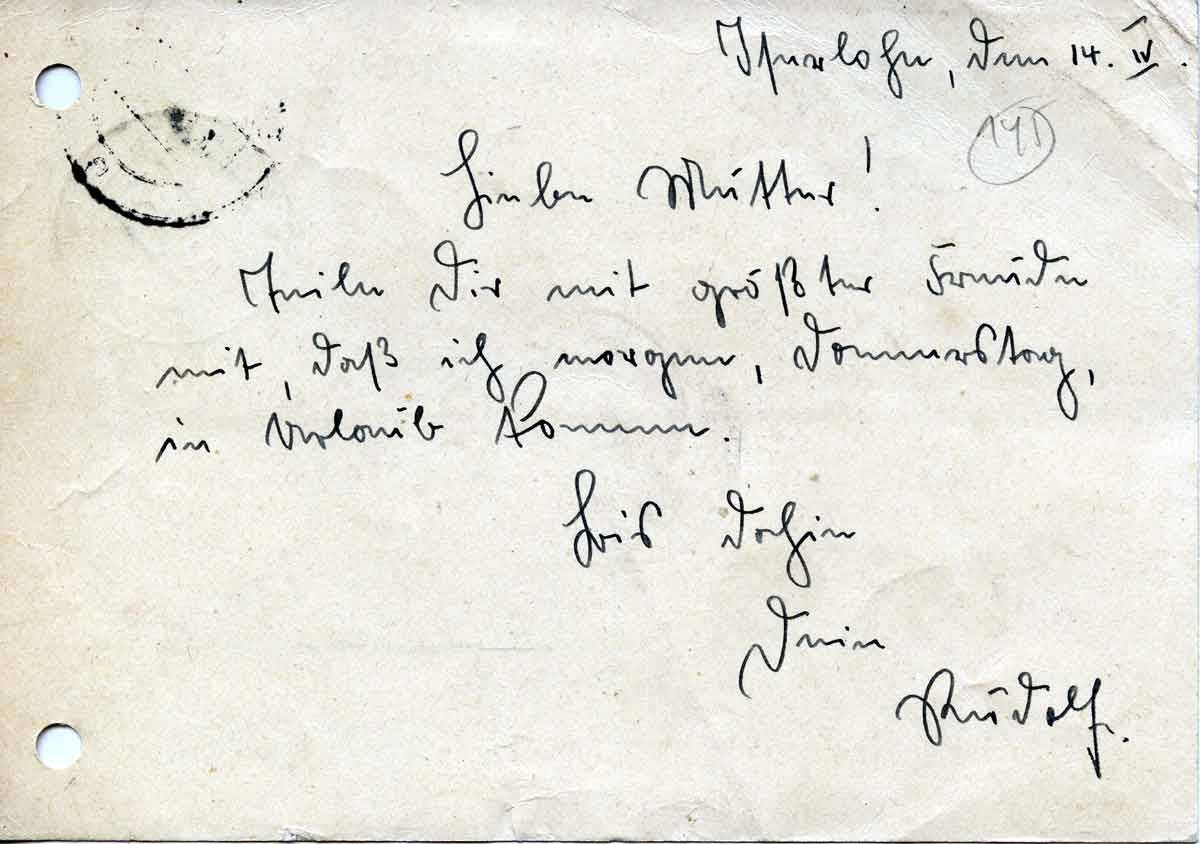 Iserlohn, den 14. IV.
141
Lieben Mutter!
Teile Dir mit größter Freude
mit, daß ich morgen, Donnerstag,
in Urlaub komme.
Bis dahin
Dein
Rudolf.